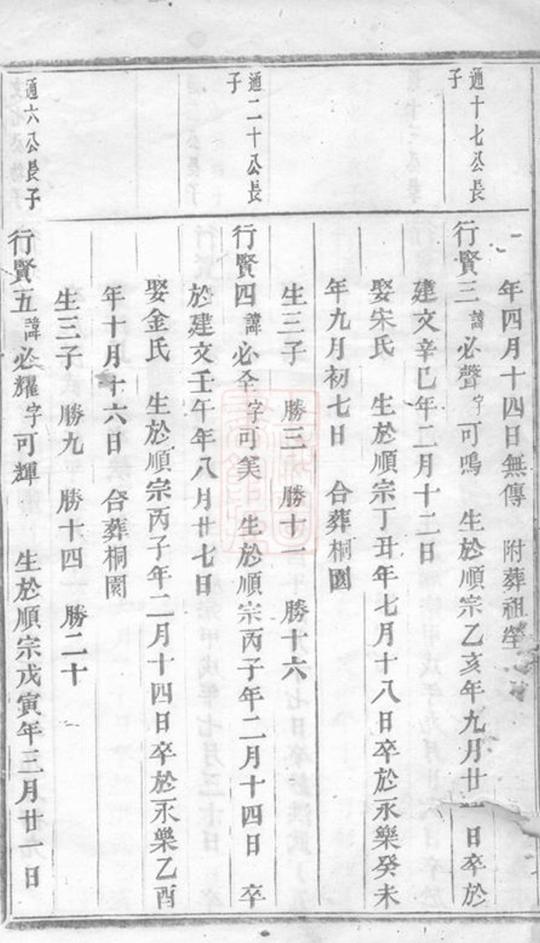 年四月十四日無傳 附葬祖塋
通十七公長
子
行賢三諱必聲字可鳴 生於順宗乙亥年九月廿 日卒於
建文辛巳年二月十二日
娶宋氏 生於順宗丁丑年七月十八日卒於永樂癸未
年九月初七日 合葬桐園
生三子 勝三 勝十一 勝十六
通二十公長
子
行賢四諱必全字可美 生於順宗丙子年二月十四日 卒
於建文壬午年八月廿七日
娶金氏 生於順宗丙子年二月十四日卒於永樂乙酉
年十月十六日 合葬桐園
生三子 勝九 勝十四 勝二十
通六公長子
行賢五諱必耀字可輝 生於順宗戊寅年三月廿一日